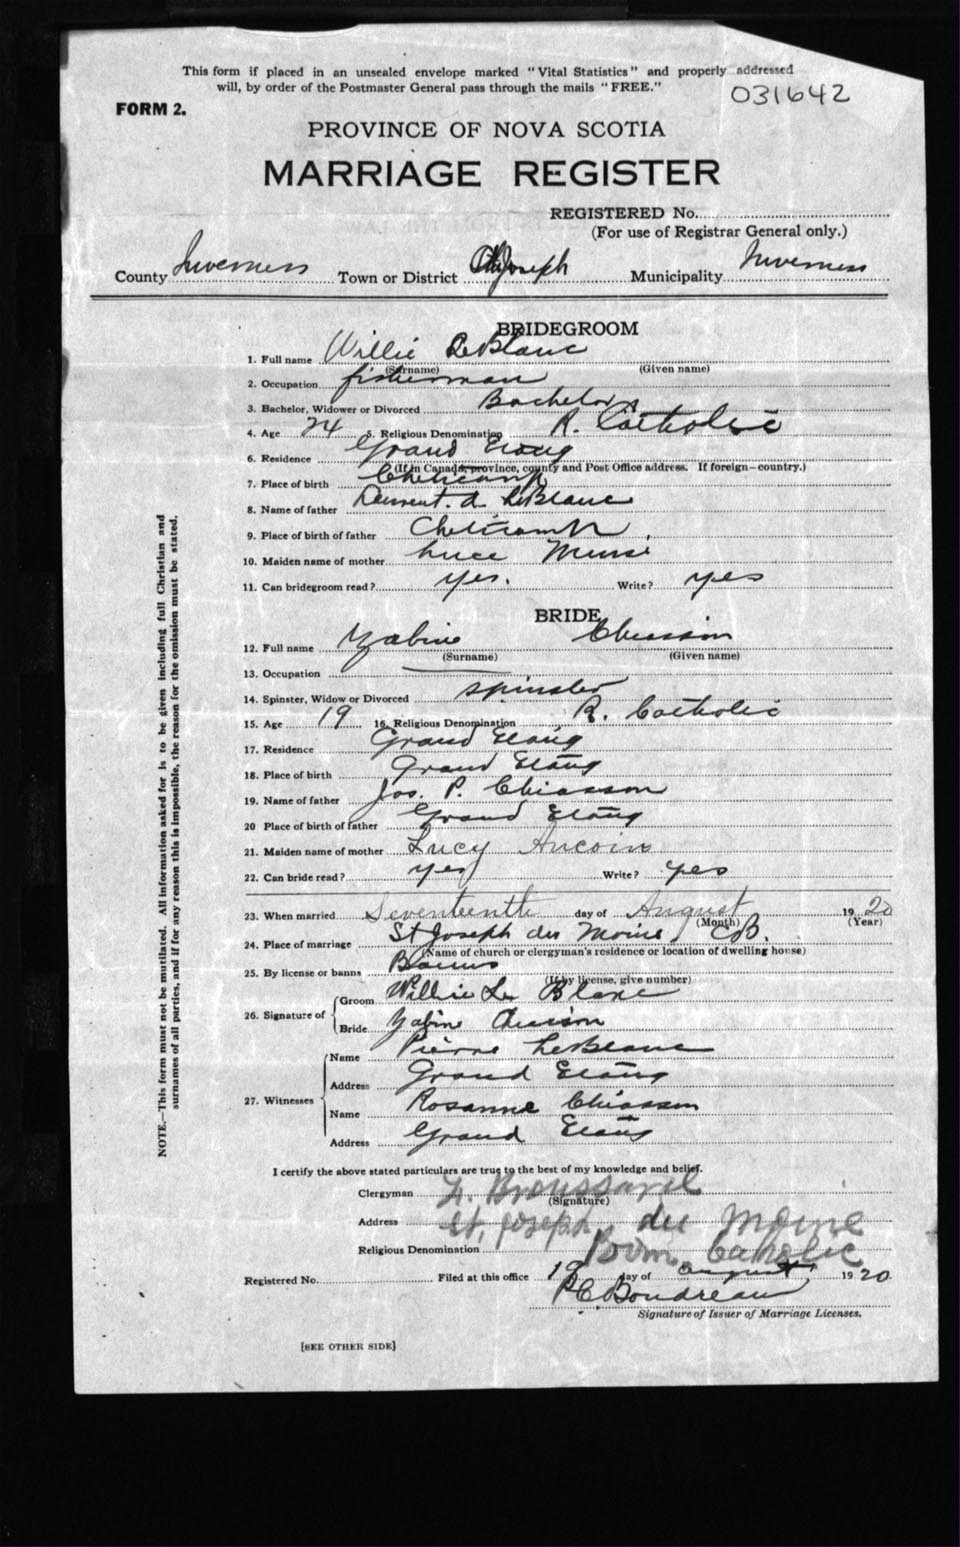 This form if placed in an unsealed envelope marked "Vital Statistics" and properly addressed
will, by order of the Postmaster General pass through the mails "FREE."
031642
FORM 2.
PROVINCE OF NOVA SCOTIA
MARRIAGE REGISTER
REGISTERED No.
(For use of Registrar General only.)
County Inverness Town or District St Joseph Municipality Inverness
BRIDEGROOM
1. Full name Willie LeBlanc
(Surname) (Given name)
2. Occupation fisherman
3. Bachelor, Widower or Divorced Bachelor
4. Age 24 5. Religious Denomination R. Catholic
6. Residence Grand Etang
(If in Canada, province, county and Post Office address. If foreign—country.)
7. Place of birth Cheticamp
8. Name of father a LeBlanc
9. Place of birth of father Cheticamp
10. Maiden name of mother Luce
11. Can bridegroom read? yes. Write? yes
BRIDE
12. Full name Zabine Chiasson
(Surname) (Given name)
13. Occupation —
14. Spinster, Widow or Divorced spinster
15. Age 19 16. Religious Denomination R. Catholic
17. Residence Grand Etang
18. Place of birth Grand Etang
19. Name of father Jos. P. Chiasson
20 Place of birth of father Grand Etang
21. Maiden name of mother Lucy Aucoin
22. Can bride read? yes Write? yes
23. When married Seventeenth day of August 1920
(Month) (Year)
24. Place of marriage St Joseph du Moine CB.
(Name of church or clergyman's residence or location of dwelling house)
25. By license or banns Banns
(If by license, give number)
26. Signature of
Groom Willie Le Blanc
Bride Zabine Chiasson
27. Witnesses
Name Pierre LeBlanc
Address Grand Etang
Name Rosanne Chiasson
Address Grand Etang
I certify the above stated particulars are true to the best of my knowledge and belief.
Clergyman Broussard
(Signature)
Address St. Joseph du Moine
Religious Denomination Rom. Catholic
Registered No. Filed at this office 19 day of august 1920
P.C. Boudreau
Signature of Issuer of Marriage Licenses.
[SEE OTHER SIDE]
NOTE.—This form must not be mutilated. All information asked for is to be given including full Christian and
surnames of all parties, and if for any reason this is impossible, the reason for the omission must be stated.